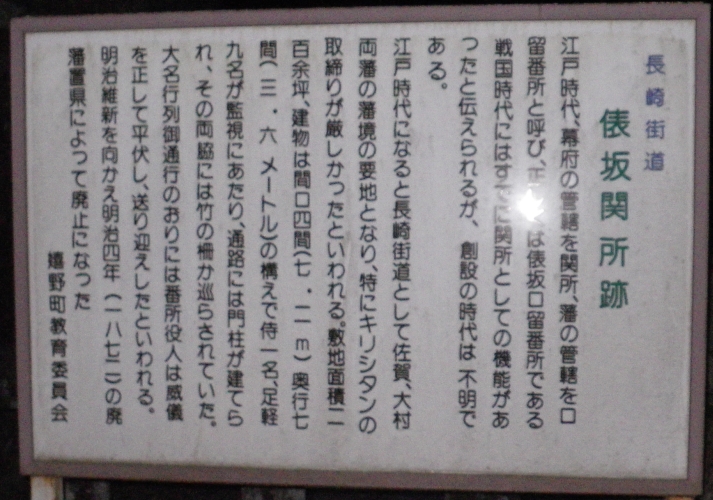 長崎街道
俵坂関所跡
江戸時代、幕府の管轄を関所、藩の管轄を口
留番所と呼び、正は俵坂口留番所である
戦国時代にはすでに関所としての機能があ
ったと伝えられるが、創設の時代は不明で
ある。
江戸時代になると長崎街道として佐賀、大村
両藩の藩境の要地となり、特にキリシタンの
取締りが厳しかったといわれる。敷地面積二
百余坪、建物は間口四間(七・二一m)奥行七
間(三．六メートル)の構えで侍一名、足軽
九名が監視にあたり、通路には門柱が建てら
れ、その両脇には竹の柵が巡らされていた。
大名行列御通行のおりには番所役人は威儀
を正して平伏し、送り迎えしたといわれる。
明治維新を向かえ明治四年(一八七二)の廃
藩置県によって廃止になった
嬉野町教育委員会